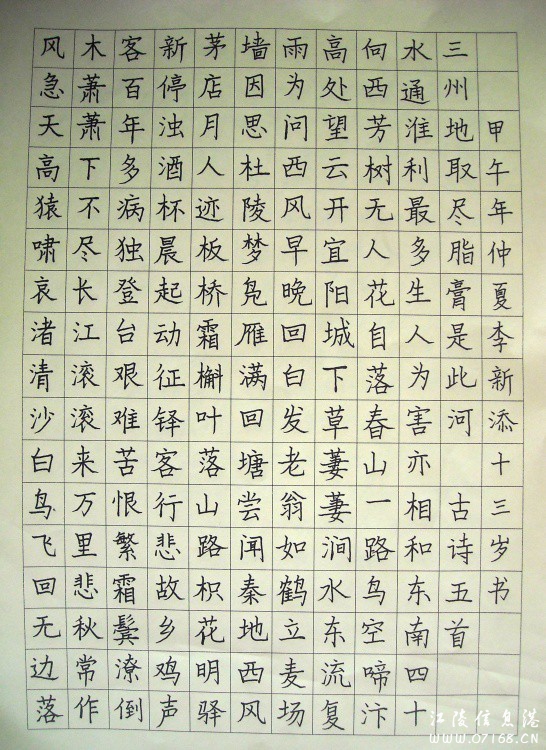 风急天高猿啸哀渚清沙白鸟飞回无边落
木萧萧下不尽长江滚滚来万里悲秋常作
客百年多病独登台艰难苦恨繁霜鬓潦倒
新停浊酒杯晨起动征铎客行悲故乡鸡声
茅店月人迹板桥霜槲叶落山路枳花明驿
墙因思杜陵梦凫雁满回塘尝闻秦地西风
雨为问西风早晚回白发老翁如鹤立麦场
高处望云开宜阳城下草萋萋涧水东流复
向西芳树无人花自落春山一路鸟空啼汴
水通淮利最多生人为害亦相和东南四十
三州地取尽脂膏是此河 古诗五首
甲午年仲夏李新添十三岁书
江陵信息港
www.07168.CN